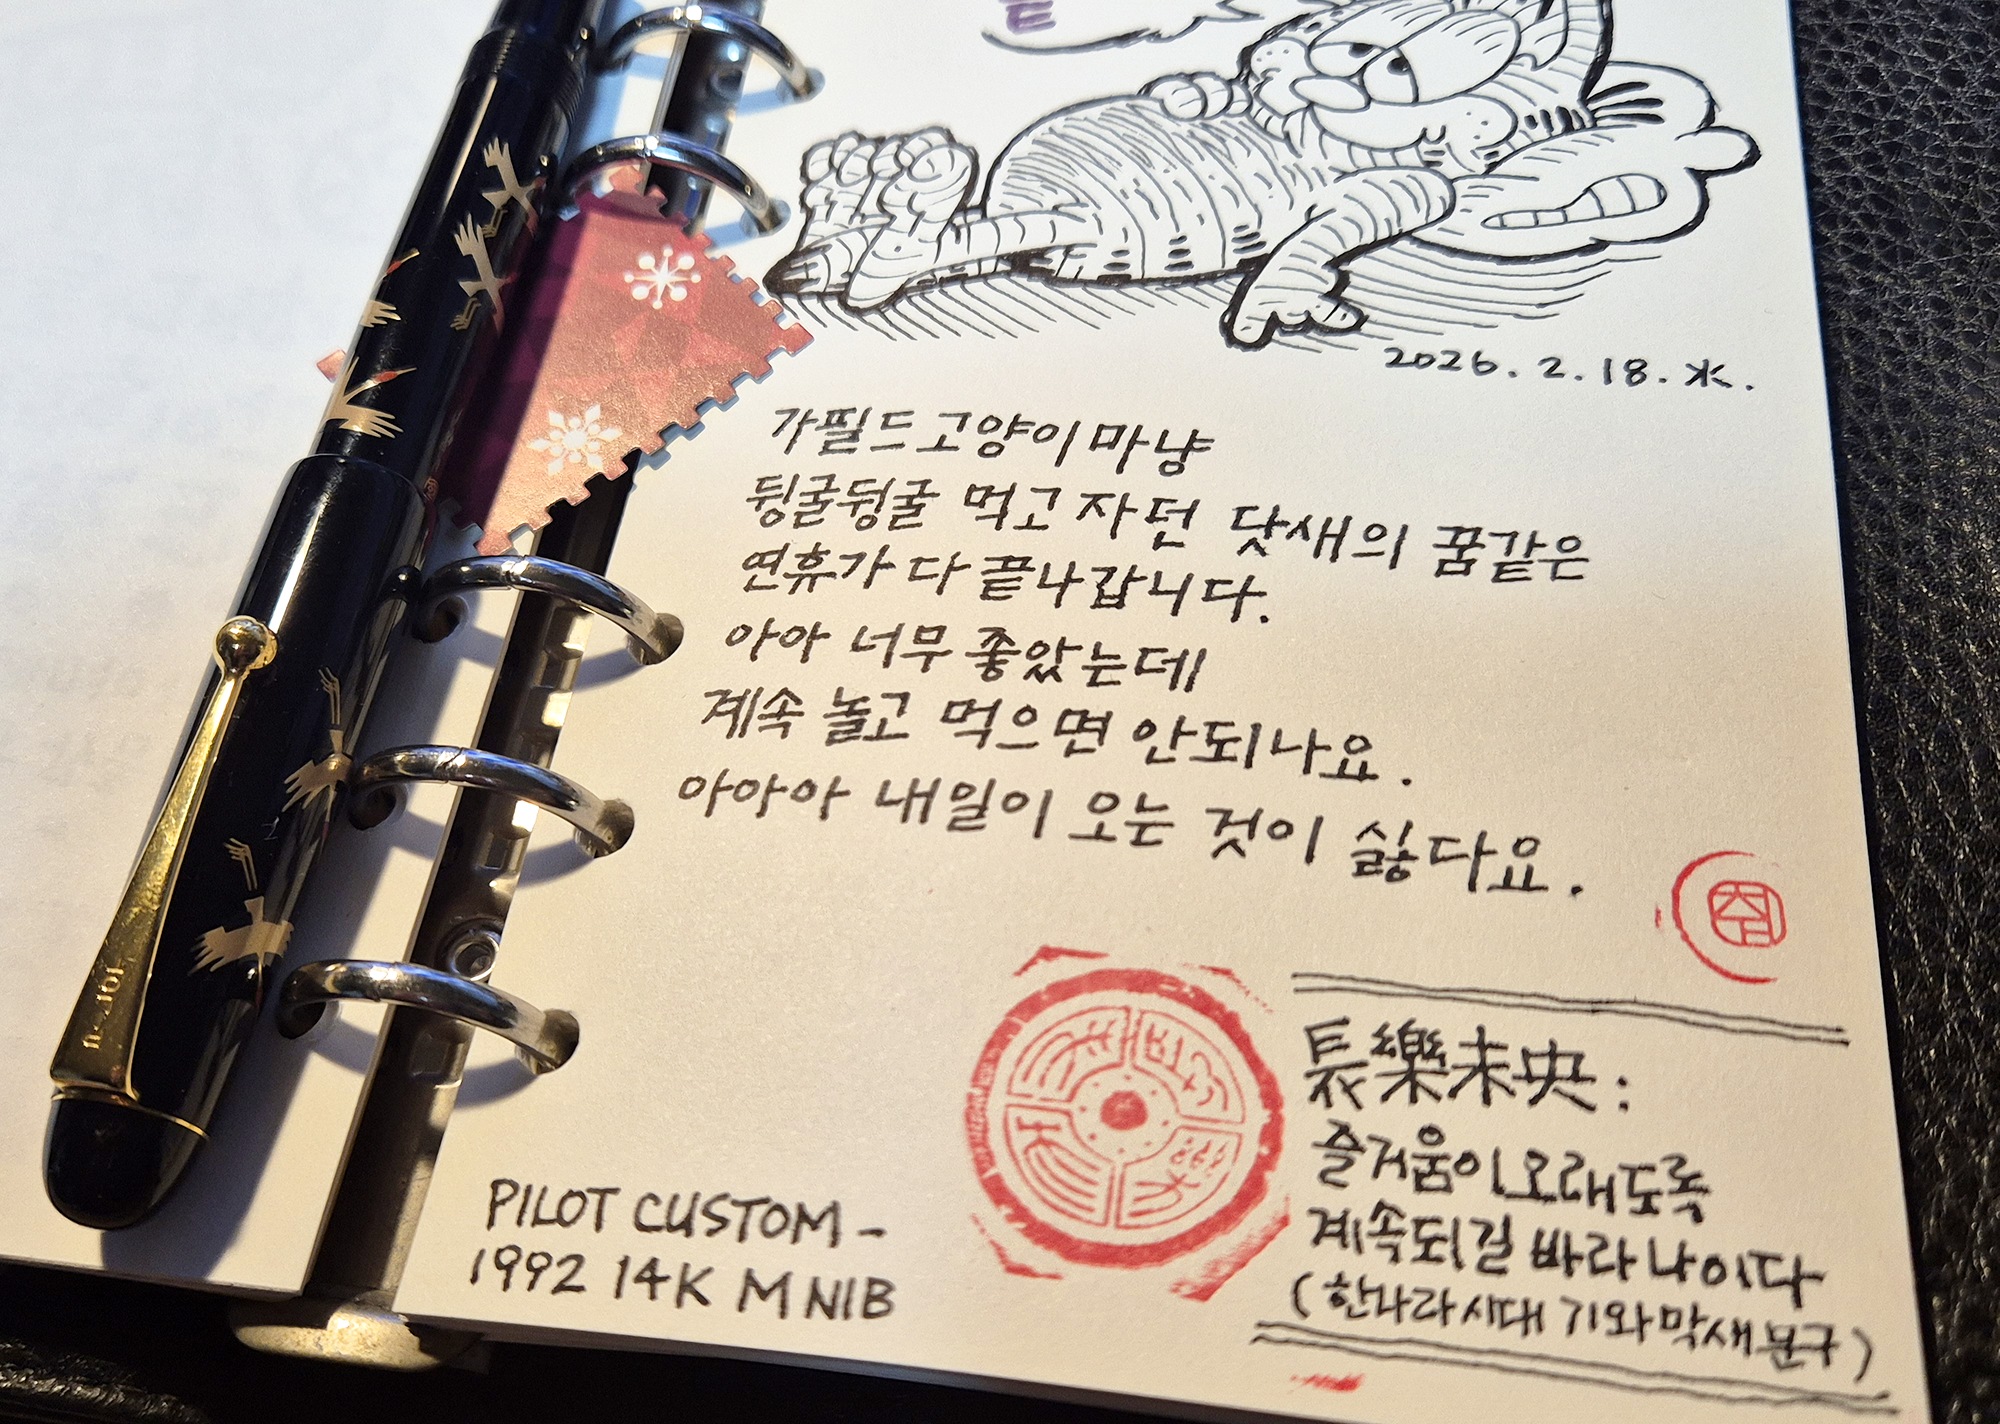 2026. 2. 18. 水.
가필드 고양이 마냥
뒹굴뒹굴 먹고 자던 닷새의 꿈같은
연휴가 다 끝나갑니다.
아아 너무 좋았는데
계속 놀고 먹으면 안되나요.
아아아 내일이 오는 것이 싫다요.
長樂未央:
즐거움이 오래도록
계속되길 바라나이다
(한나라시대 기와막새문구)
PILOT CUSTOM -
1992 14K M NIB
PILOT